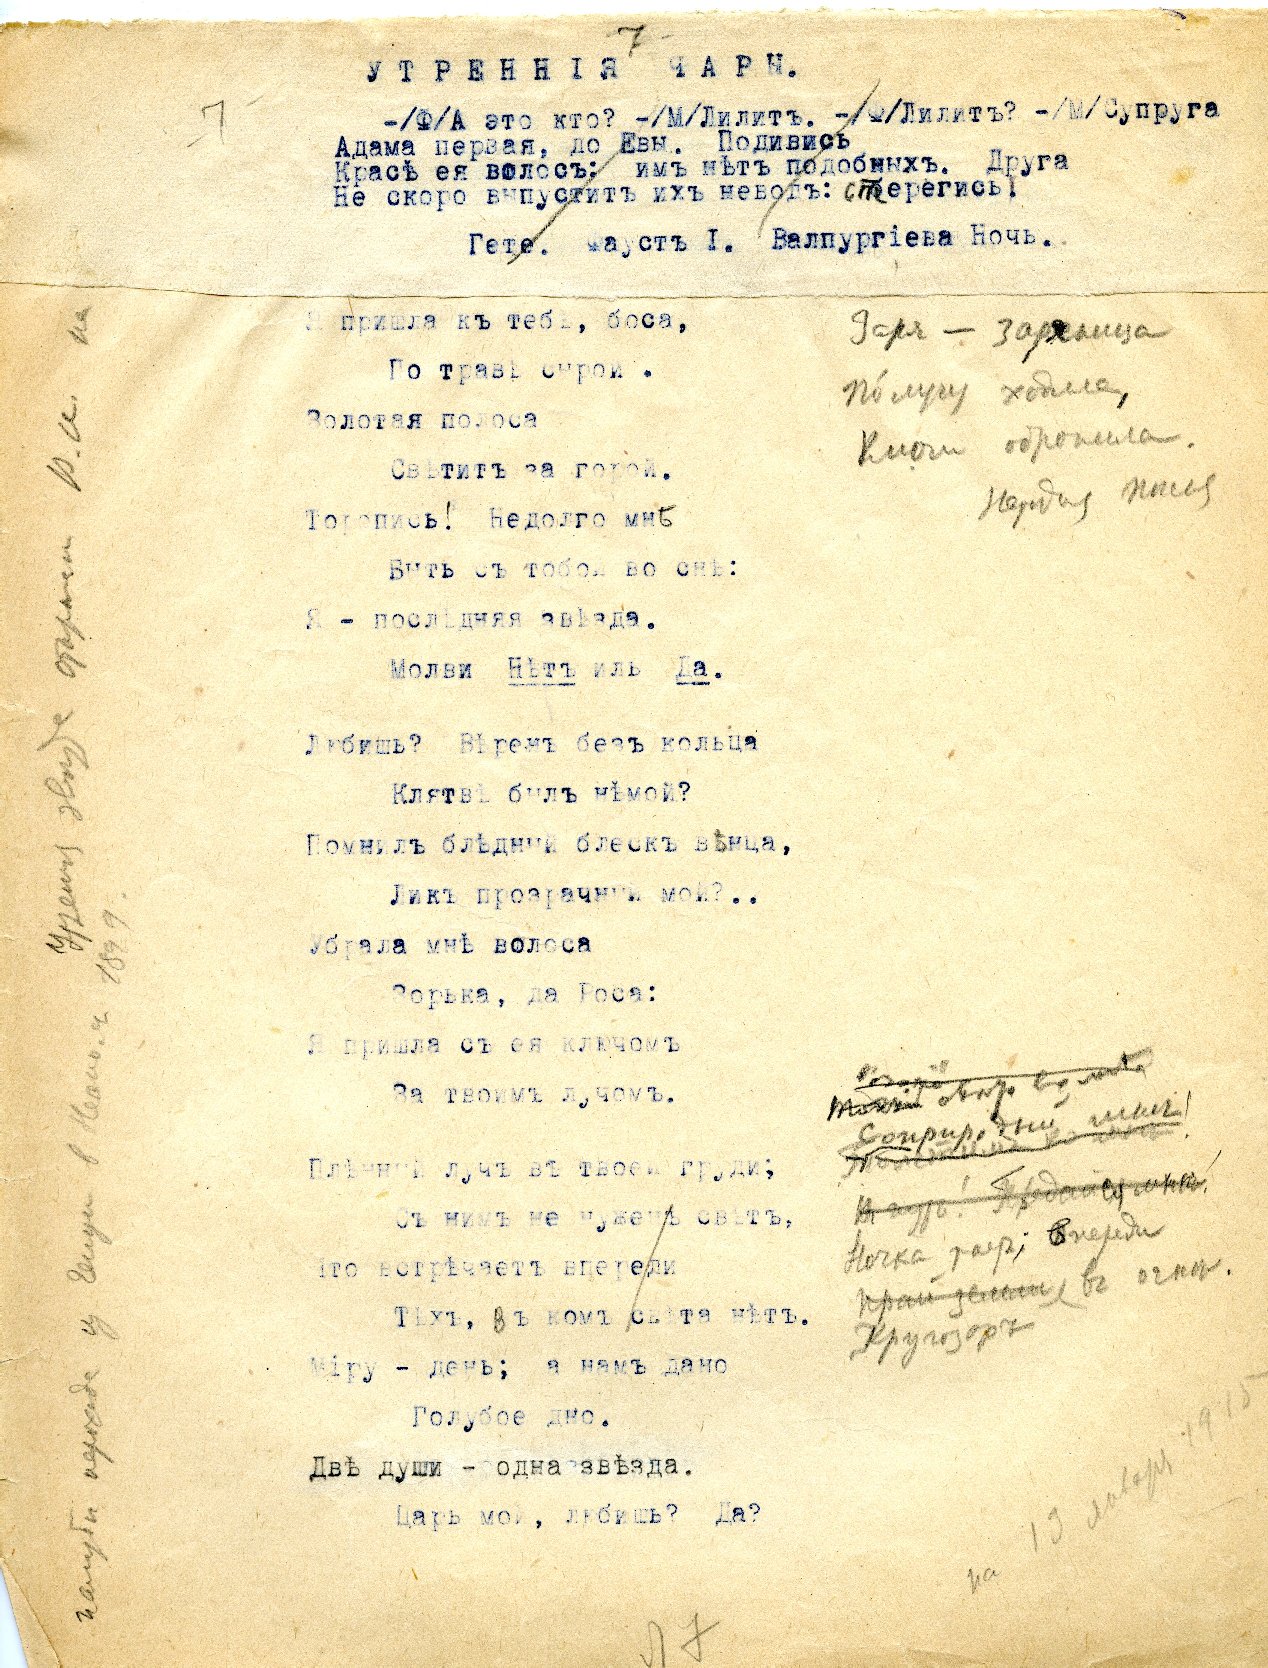 7
УТРЕННІЯ ЧАРЫ.
7
-/Ф/А это кто? -/М/Лилитъ. -/Ф/Лилитъ? -/М/Супруга
Адама первая, до Евы. Подивись
Красѣ ея волосъ: имъ нѣтъ подобныхъ. Друга
Не скоро выпуститъ ихъ неводъ: стерегись!
Гете. Фаустъ I. Валпургіева Ночь.
Я пришла къ тебѣ, боса,
По травѣ сырой.
Золотая полоса
Свѣтитъ за горой.
Торопись! Недолго мнѣ
Быть съ тобой во снѣ:
Я - послѣдняя звѣзда.
Молви Нѣтъ иль Да.
Любишь? Вѣренъ безъ кольца
Клятвѣ былъ нѣмой?
Помнилъ блѣдный блескъ вѣнца,
Ликъ прозрачный мой?..
Убрала мнѣ волоса
Зорька, да Роса:
Я пришла съ ея ключомъ
За твоимъ лучомъ.
Плѣнный лучъ въ твоей груди;
Съ нимъ не нуженъ свѣтъ,
Что встрѣчаетъ впереди
Тѣхъ, въ комъ свѣта нѣтъ.
Міру - день; а намъ дано
Голубое дно.
Двѣ души - одна звѣзда.
Царь мой, любишь? Да?
Заря — заряница
По лугу ходила,
Ключи обронила.
Ночка таетъ; впереди
край земли въ огнѣ.
Кругозоръ
на 13 января 1915
7